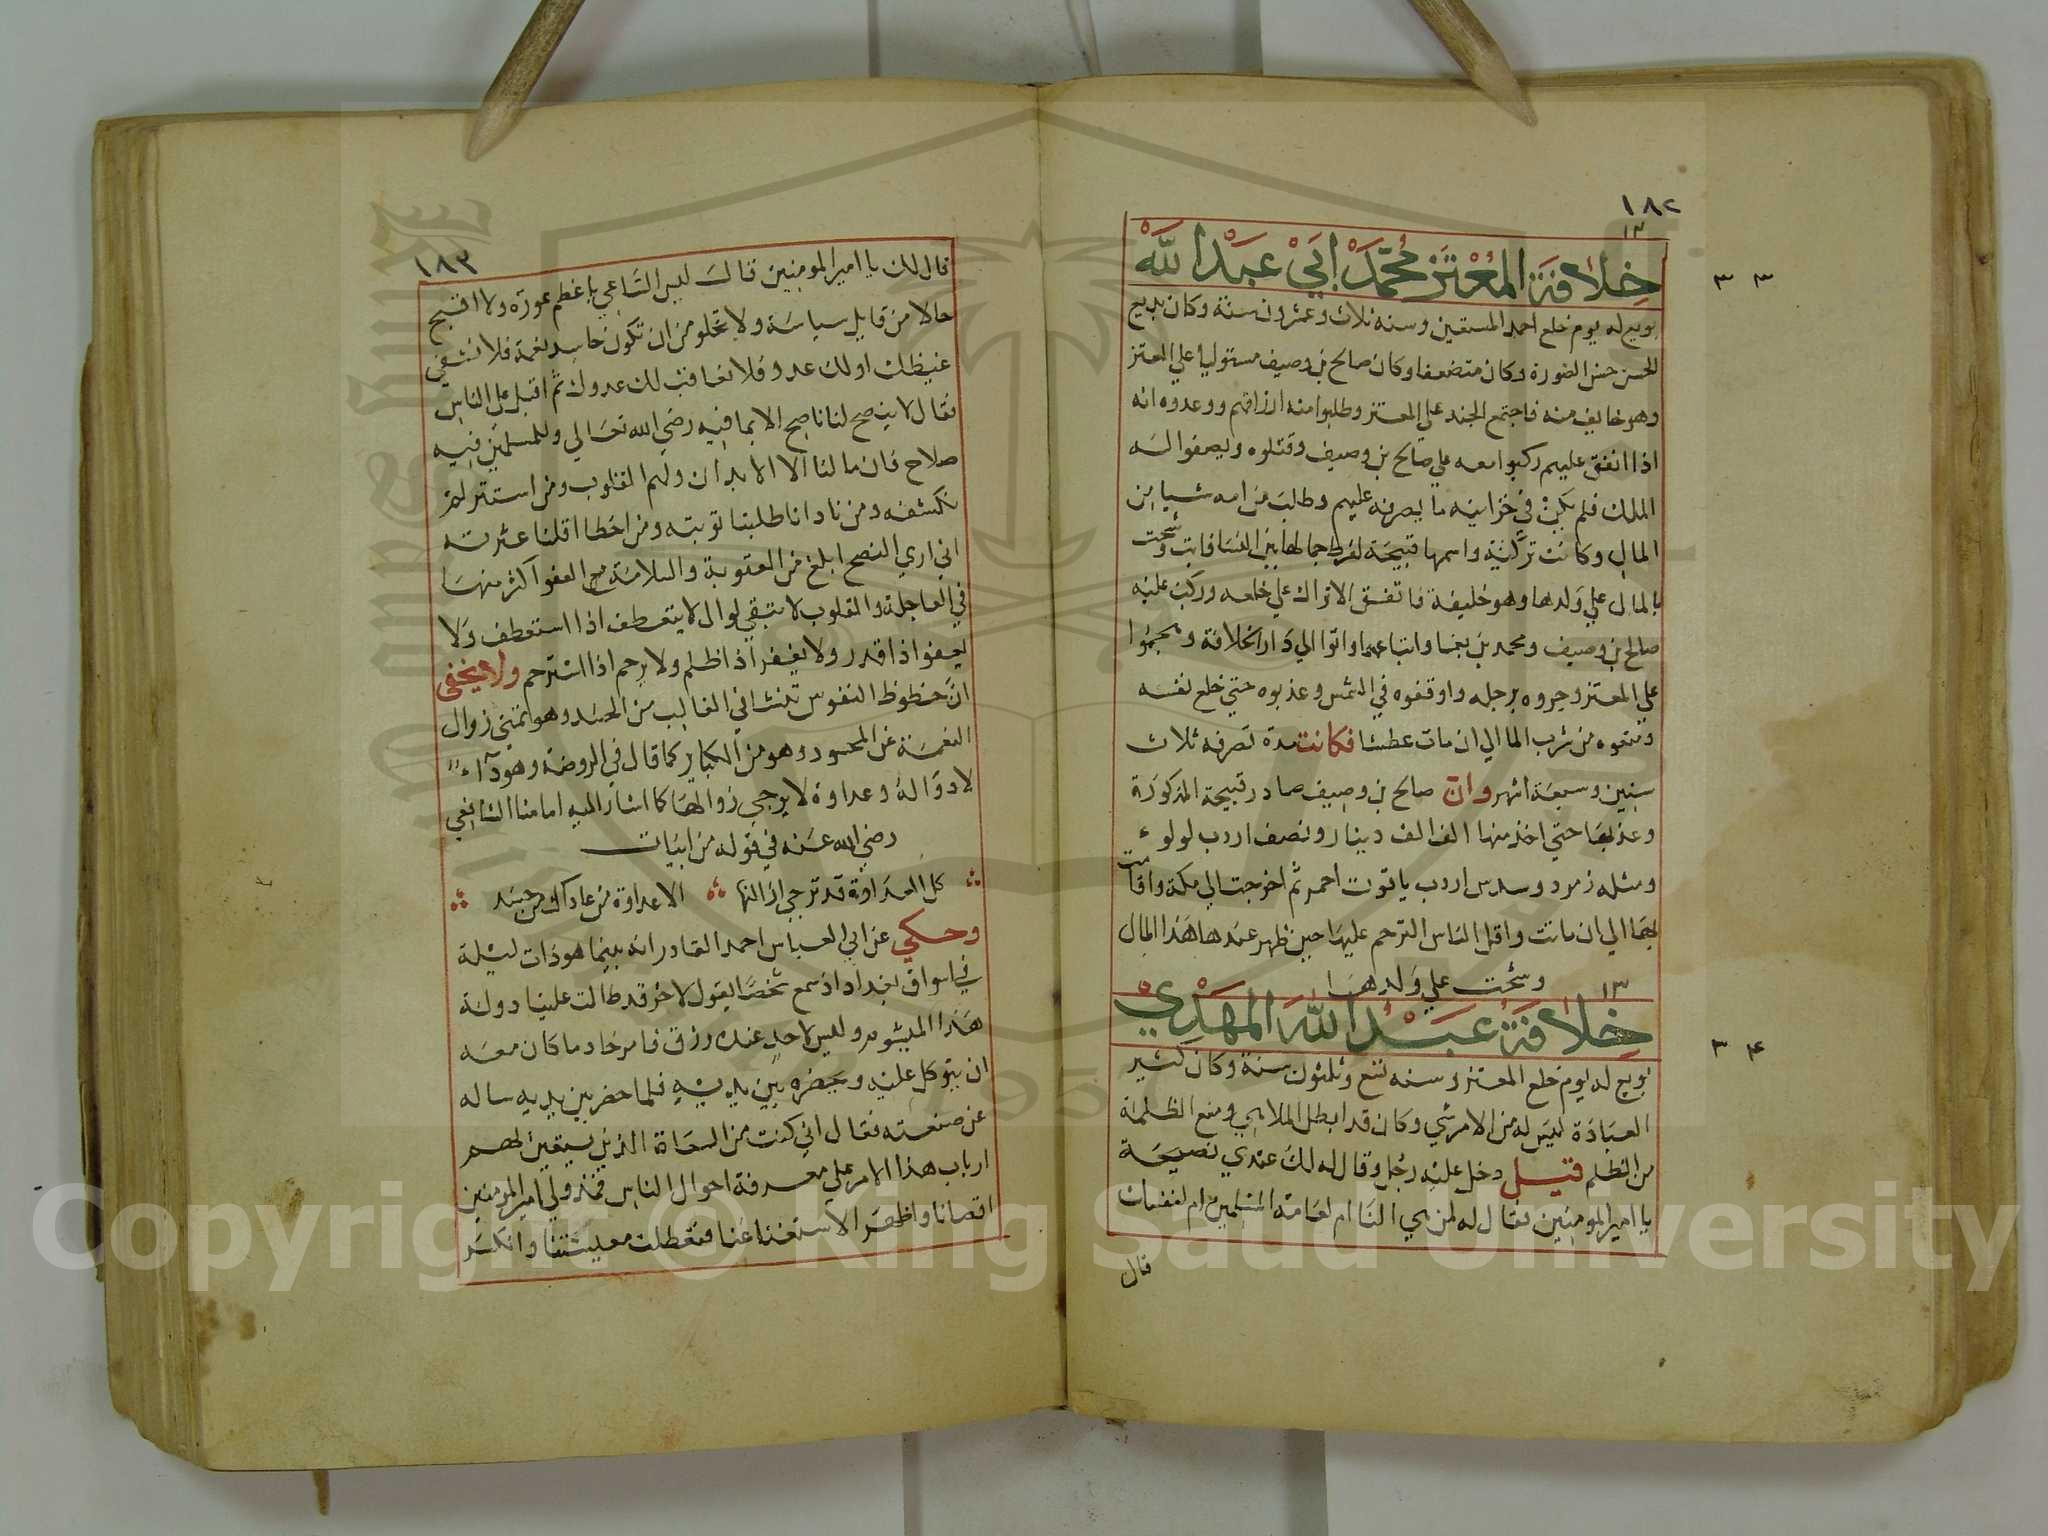 ١٨٢
١٣
خلافة المعتز محمد ابي عبد الله
٣ ٣
بويع له يوم خلع احمد المستعين وسنه ثلاث وعشرون سنة وكان بديع
الحسن حسن الصورة وكان متضعفا وكان صالح بن وصيف مستوليا علي المعتز
وهو خايف منه فاجتمع الجند علي المعتز وطلبوا منه ارزاقهم ووعدوه انه
اذا انفق عليهم ركبوا معه علي صالح بن وصيف وقتلوه ويصفوا له
الملك فلم يكن في خزاينه ما يصرفه عليهم وطلب من امه شيا من
المال وكانت تركية واسمها قبيحة لفرط جمالها بين النسا فابت وشحت
بالمال علي ولدها وهو خليفة فاتفق الاتراك علي خلعه وركب عليه
صالح بن وصيف ومحمد بن بغا واتباعهما واتوا الي دار الخلافة وهجموا
علي المعتز وجروه برجله واوقفوه في الشمس وعذبوه حتي خلع نفسه
ومنعوه من شرب الما الي ان مات عطشا فكانت مدة تصرفه ثلاث
سنين وسبعة اشهر وان صالح بن وصيف صادر قبيحة المذكورة
وعذبها حتي اخذ منها الف الف دينار ونصف اردب لولوء
ومثله زمرد وسدس اردب ياقوت احمر ثم اخرجت الي مكة واقامت
بها الي ان ماتت واقل الناس الترحم عليها حين ظهر عندها هذا المال
وشحت علي ولدها
١٣
خلافة عبد الله المهدي
٣ ٤
بويع له يوم خلع المعتز وسنه تسع وثلثون سنة وكان كثير
العبادة ليس له من الامر شي وكان قد ابطل الملاهي ومنع الظلمة
من الظلم قيل دخل عليه رجل وقال له لك عندي نصيحة
يا امير المومنين فقال له لمن هي النا ام لعامة المسلمين ام لنفسك
قال
١٨٣
قال لك يا امير المومنين قال ليس الساعي باعظم عورة ولا اقبح
حالا من قابل سياسة ولا يخلو من ان تكون حاسد نعمة فلا نشفي
غيظك او لك عدو فلا نعاقب لك عدوك ثم اقبل علي الناس
فقال لا ينصح لنا ناصح الا بما فيه رضي الله تعالي وللمسلمين فيه
صلاح فان مالنا الا الابدان ولهم القلوب ومن استتر لم
نكشفه ومن نادانا طلبنا توبته ومن اخطا اقلنا عثرته
اني اري النصح ابلغ من العقوبة والسلامة مع العفو اكثر منها
في العاجلة والقلوب لا تبقي لوال لا يتعطف اذا استعطف ولا
يعفو اذا قدر ولا يغفر اذا ظلم ولا يرحم اذا استرحم ولا يخفى
ان حظوظ النفوس تنشا في الغالب من الحسد وهو تمني زوال
النعمة عن المحسود وهو من الكباير كما قال في الروضة وهو داء
لا دوا له وعداوة لا يرجي زوالها كما اشار اليه امامنا الشافعي
رضي الله عنه في قوله من ابيات
كل العداوة قد ترجي ازالتها الا عداوة من عاداك من حسد
وحكي عن ابي العباس احمد القادر انه بينما هو ذات ليلة
في اسواق بغداد اذ سمع شخصا يقول لاخر قد طالت علينا دولة
هذا المشوم وليس لاحد عنده رزق فامر خادما كان معه
ان يتوكل عليه ويحضره بين يديه فلما حضر بين يديه ساله
عن صنعته فقال اني كنت من السعاة الذين يستعين بهم
ارباب هذا الامر علي معرفة احوال الناس فمذ ولي امير المومنين
اقصانا واظهر الاستغنا عنا فتعطلت معيشتنا وانكسر
Copyright © King Saud University